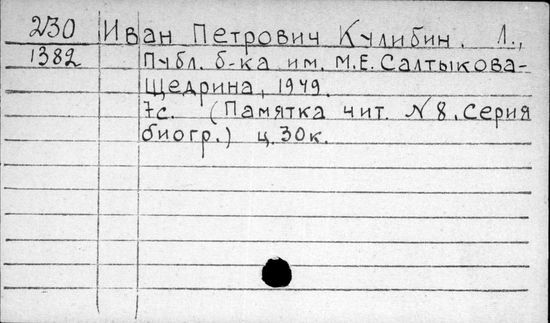 230 Иван Петрович Кулибин. Л.,
1382 Публ. б-ка им. М.Е. Салтыкова-
Щедрина, 1949.
7с. (Памятка чит. N 8. Серия
биогр.) ц. 30к.